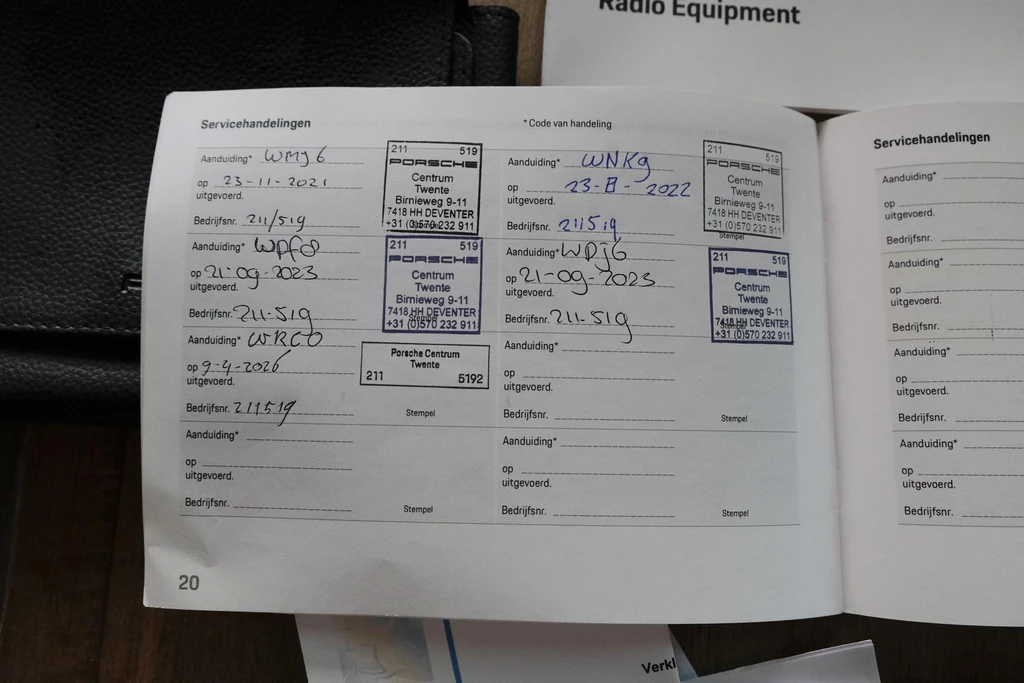 Radio Equipment
Servicehandelingen
* Code van handeling
Aanduiding* WMJ6
op 23-11-2021
uitgevoerd.
Bedrijfsnr. 211/519
211 519
PORSCHE
Centrum
Twente
Birnieweg 9-11
7418 HH DEVENTER
+31 (0)570 232 911
Aanduiding* WNKg
op 23-8-2022
uitgevoerd.
Bedrijfsnr. 211519
211 519
PORSCHE
Centrum
Twente
Birnieweg 9-11
7418 HH DEVENTER
+31 (0)570 232 911
Stempel
Aanduiding* WPf08
op 21-09-2023
uitgevoerd.
Bedrijfsnr. 211-519
211 519
PORSCHE
Centrum
Twente
Birnieweg 9-11
7418 HH DEVENTER
Stempel
+31 (0)570 232 911
Aanduiding* WPJ6
op 21-09-2023
uitgevoerd.
Bedrijfsnr. 211-519
211 519
PORSCHE
Centrum
Twente
Birnieweg 9-11
7418 HH DEVENTER
Stempel
+31 (0)570 232 911
Aanduiding* WRC0
op 9-4-2026
uitgevoerd.
Bedrijfsnr. 211519
Porsche Centrum
Twente
211 5192
Stempel
Aanduiding*
op
uitgevoerd.
Bedrijfsnr.
Stempel
Aanduiding*
op
uitgevoerd.
Bedrijfsnr.
Stempel
Aanduiding*
op
uitgevoerd.
Bedrijfsnr.
Stempel
20
Servicehandelingen
Aanduiding*
op
uitgevoerd.
Bedrijfsnr.
Aanduiding*
op
uitgevoerd.
Bedrijfsnr.
Aanduiding*
op
uitgevoerd.
Bedrijfsnr.
Aanduiding*
op
uitgevoerd.
Bedrijfsnr.
Verkl